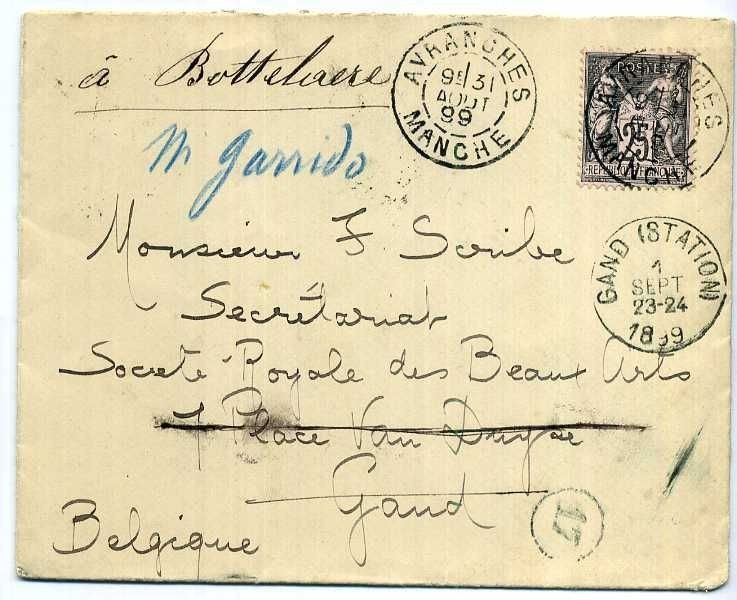 à Bottelaere
AVRANCHES
9E 31
AOUT
99
MANCHE
POSTES
25
REPUBLIQUE FRANCAISE
AVRANCHES
MANCHE
M Garrido
Monsieur F Scribe
Secrétariat
Societé Royale des Beaux Arts
7 Place Van Duyse
Gand
Belgique
GAND (STATION)
1
SEPT
23-24
1899
17